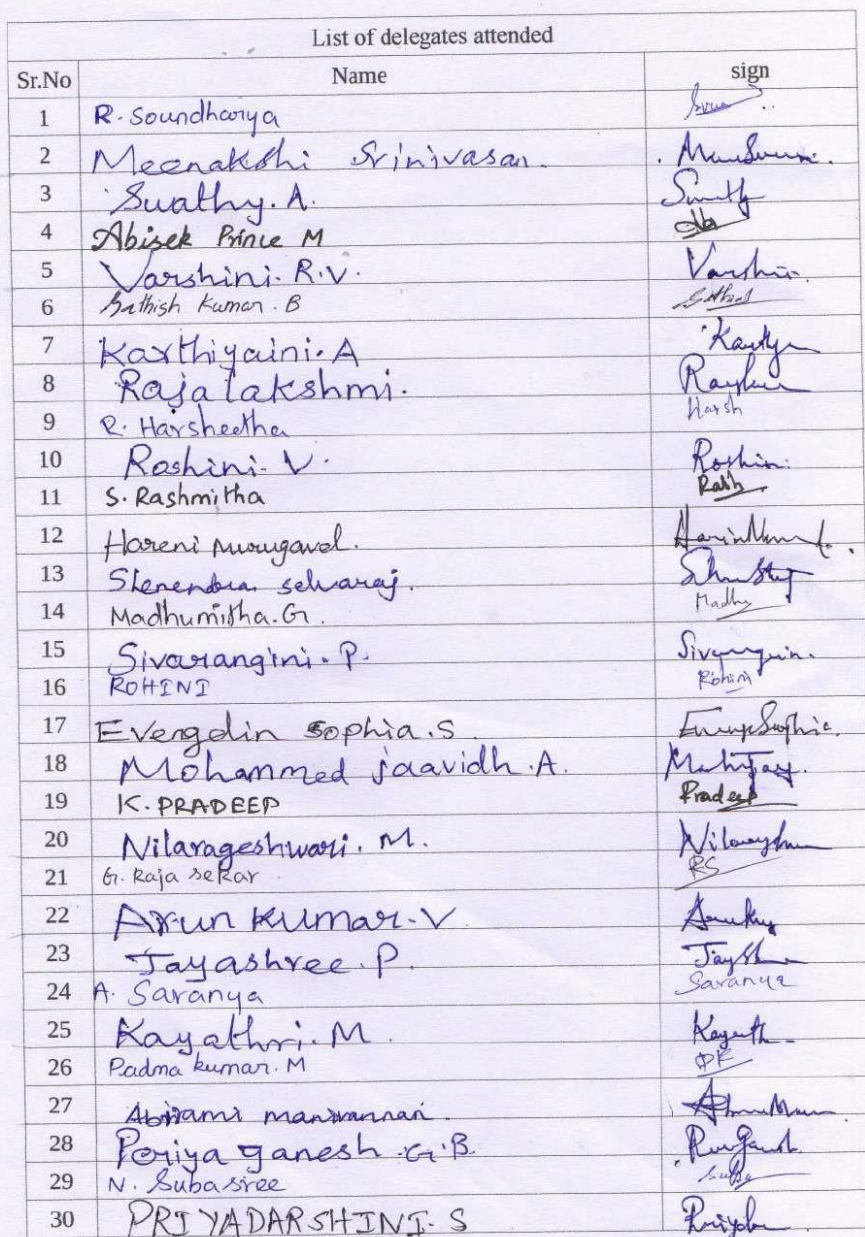 List of delegates attended
Sr.No Name sign
1 R. Soundharya
2 Meenakshi Srinivasan.
3 Swathy. A. Swathy
4 Abisek Prince M
5 Varshini. R.V. Varshini
6 Sathish Kumar. B Sathish
7 Karthiyaini. A
8 Rajalakshmi.
9 R. Harsheetha Harsh
10 Roshini. V. Roshin
11 S. Rashmitha Rash
12 Hareni Murugavel.
13 Selvaraj.
14 Madhumitha. G. Madhu
15 Sivarangini. P.
16 ROHINI Rohini
17 Evengelin Sophia. S
18 Mohammed jaavidh. A.
19 K. PRADEEP Pradeep
20 Nilarageshwari. M.
21 G. Raja sekar RS
22 Arun Kumar. V
23 Jayashree. P.
24 A. Saranya Saranya
25 Kayathri. M.
26 Padma kumar. M PK
27 Abirami manivannan.
28 Poriya ganesh. G.B.
29 N. Subasree Suba
30 PRIYADARSHINI. S